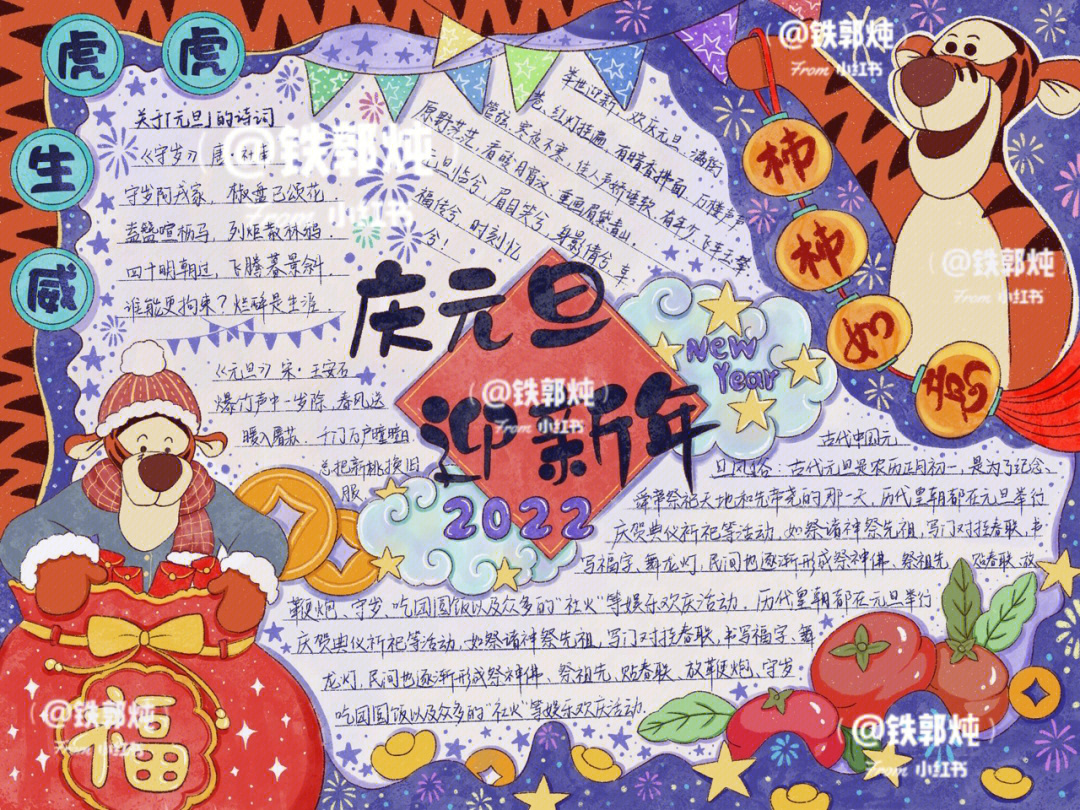 虎
虎
生
威
关于「元旦」的诗词
《守岁》唐·杜甫
守岁阿戎家，椒盘已颂花，
盍簪喧枥马，列炬散林鸦，
四十明朝过，飞腾暮景斜，
谁能更拘束？烂醉是生涯，
《元旦》宋·王安石
爆竹声中一岁除，春风送
暖入屠苏，千门万户曈曈日
总把新桃换旧
服
举世迎新，欢庆元旦，满街
红灯挂遍，有暗香拂面，万楼声声
管弦，寒夜不寒，佳人声娇睡软，有年少飞车
原野茫茫，看皓月霄汉，重画眉黛青山，
元旦临兮，眉目笑兮，身影情兮，幸
福传兮，时刻忆
兮！
庆元旦
迎新年
2022
New
Year
柿
柿
如
意
古代中国元
旦风俗：古代元旦是农历正月初一，是为了纪念
舜帝祭祀天地和先帝尧的那一天，历代皇朝都在元旦举行
庆贺典仪祈祀等活动，如祭诸神祭先祖，写门对挂春联，书
写福字、舞龙灯，民间也逐渐形成祭神佛、祭祖先、贴春联、放
鞭炮、守岁、吃团圆饭以及众多的“社火”等娱乐欢庆活动，历代皇朝都在元旦举行
庆贺典仪祈祀等活动，如祭诸神祭先祖，写门对挂春联，书写福字、舞
龙灯，民间也逐渐形成祭神佛、祭祖先、贴春联、放鞭炮、守岁
吃团圆饭以及众多的“社火”等娱乐欢庆活动．
福
@铁郭炖
From 小红书
@铁郭炖
From 小红书
@铁郭炖
From 小红书
@铁郭炖
From 小红书
@铁郭炖
From 小红书
@铁郭炖
From 小红书